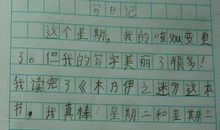 日记
这个星期，我的咳sou变重
了。但我的写字美丽了很多！
我读完了《木乃伊之迷》这本
书，我真棒！星期二和星期三